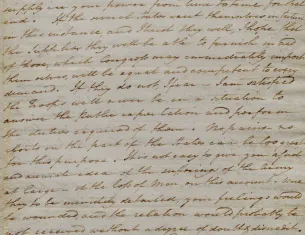 supply in your power from time to time, for this
end. If the several states exert themselves in time
in this instance, and I trust they will, I hope that
the supplies they will be able to furnish in aid
of those, which Congress may immediately import
themselves, will be equal and competent to every
demand. If they do not I fear I am satisfied
the Troops will never be in a situation to
answer the public expectation and perform
the duties required of them. No pains, no
efforts on the part of the States can be too great
for this purpose. It is not easy to give you a just
and accurate idea of the sufferings of the Army
at large of the loss of Men on this account. Were
they to be minutely detailed, your feelings would
be wounded, and the relation would probably be
not received without a degree of doubt & discredit